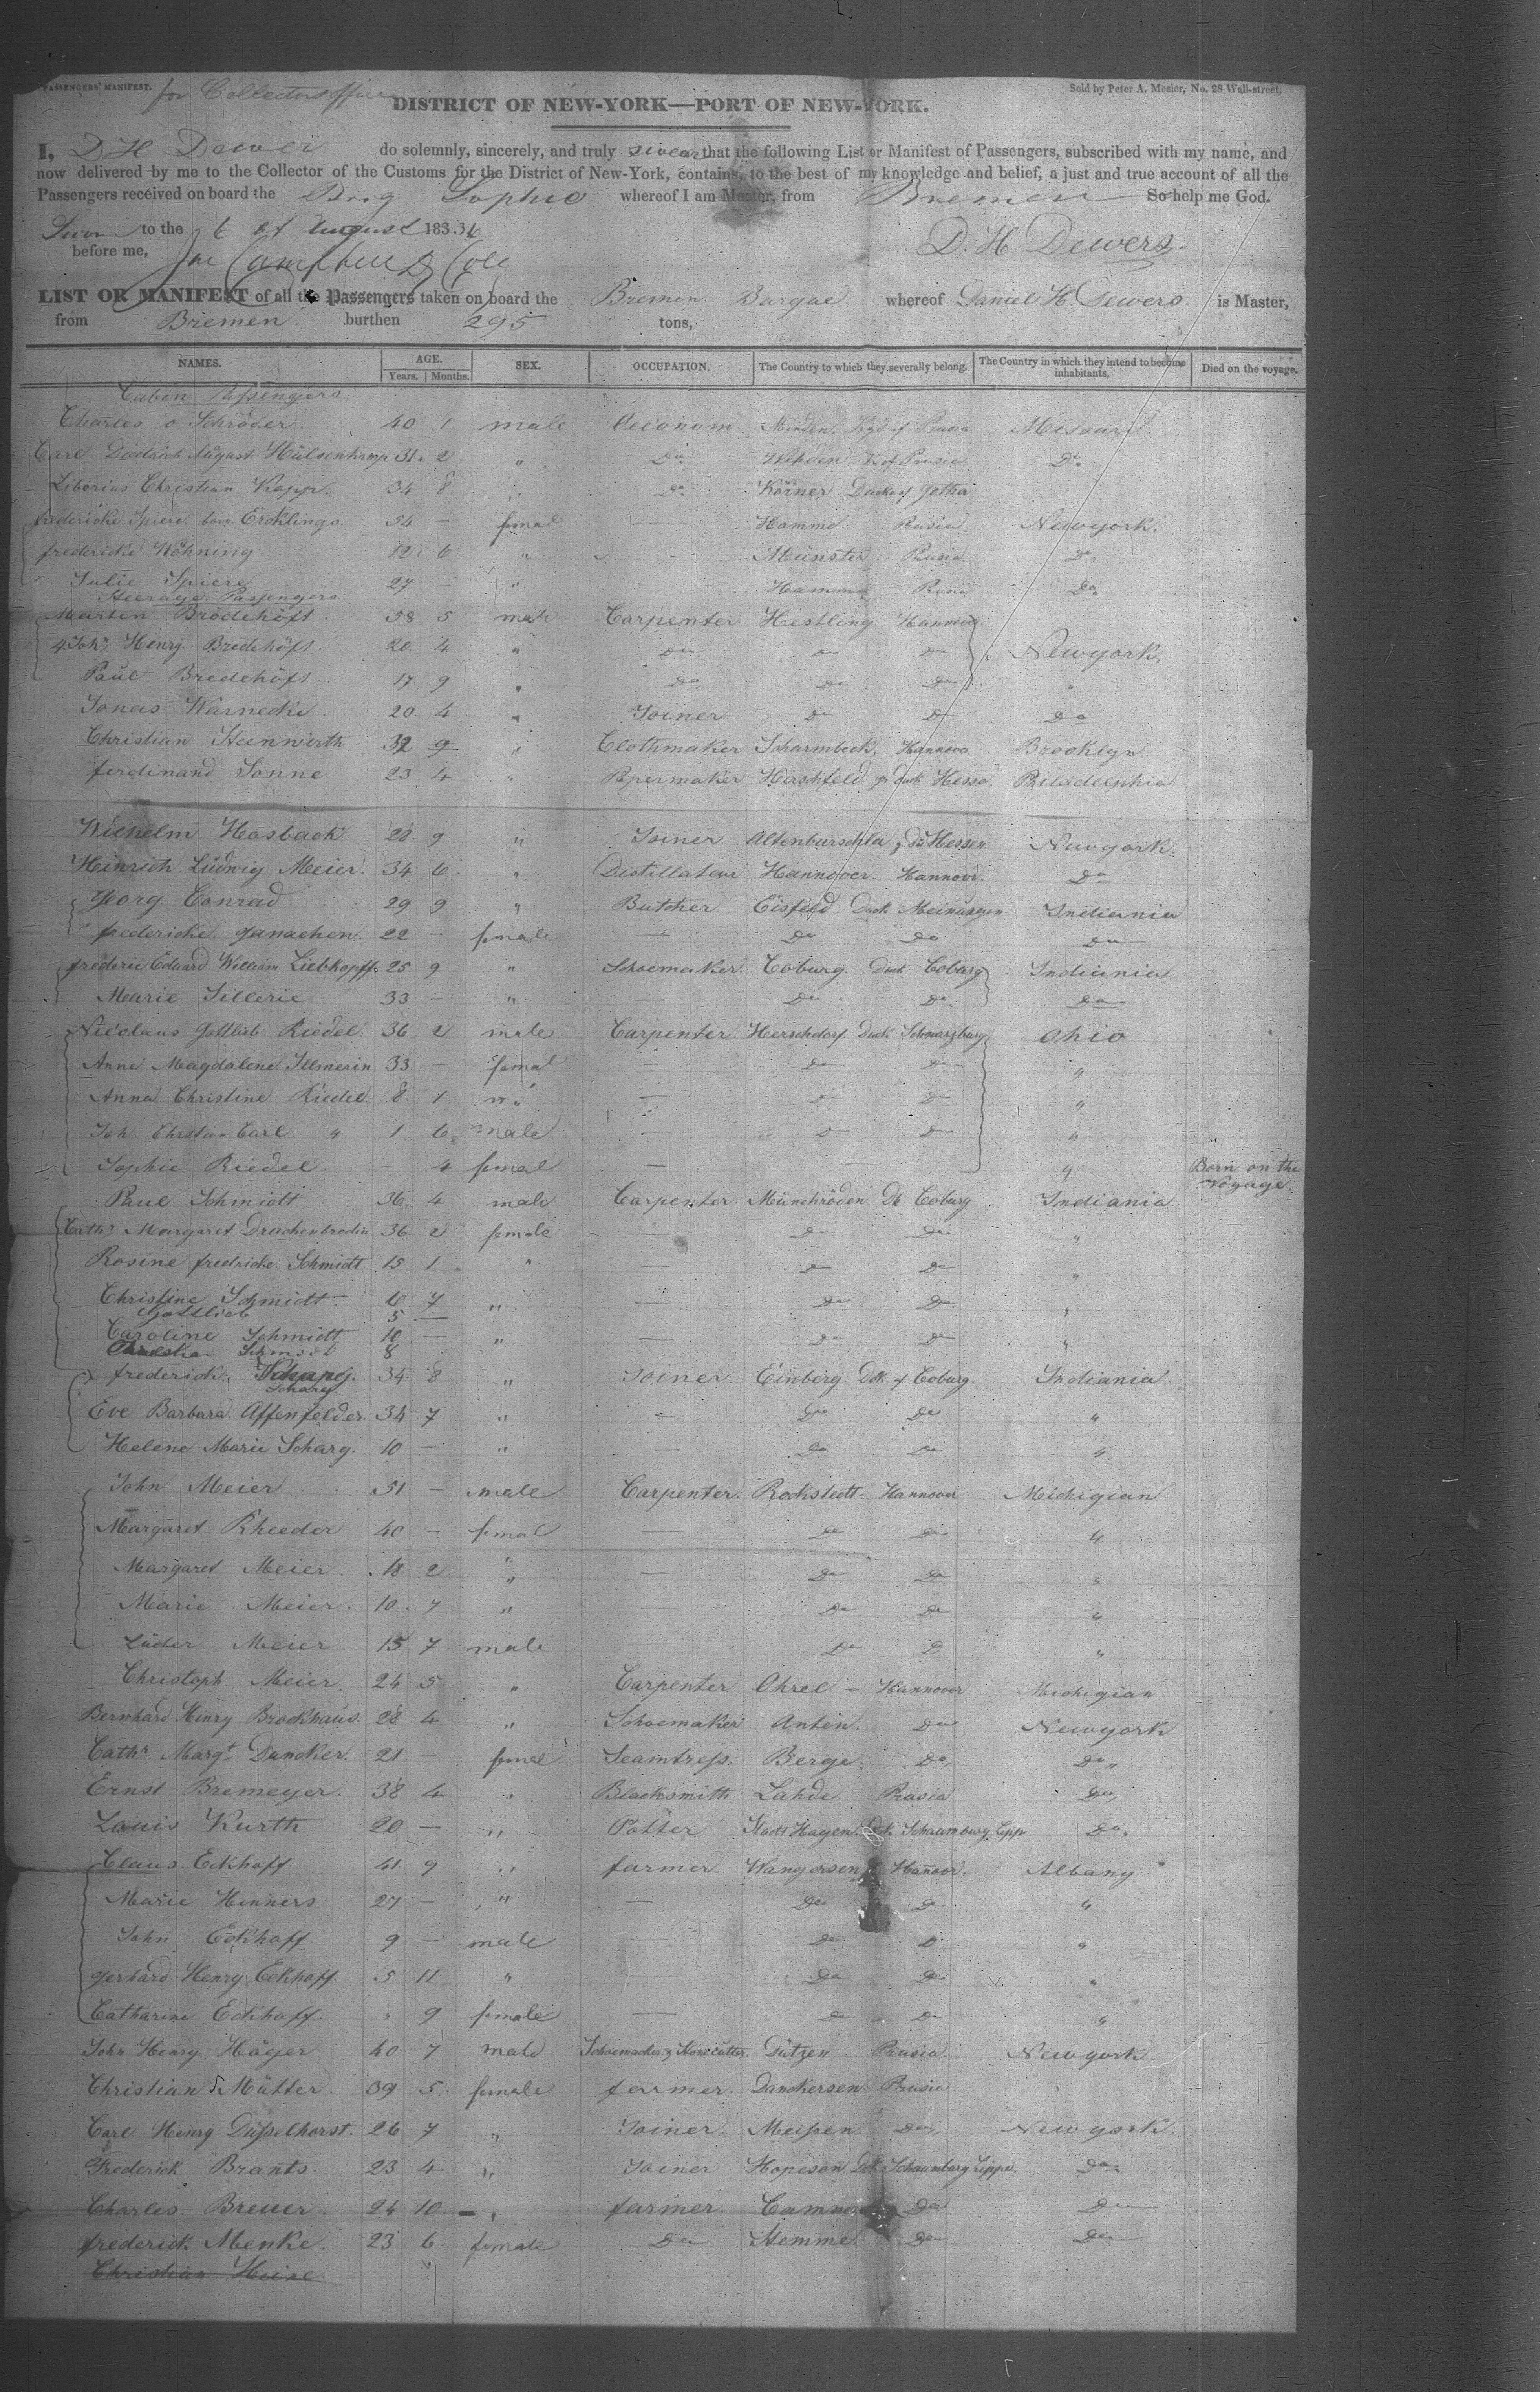 PASSENGERS' MANIFEST.
for Collectors office
Sold by Peter A. Mesier, No. 28 Wall-street.
DISTRICT OF NEW-YORK—PORT OF NEW-YORK.
I, D H Dewer do solemnly, sincerely, and truly swear that the following List or Manifest of Passengers, subscribed with my name, and
now delivered by me to the Collector of the Customs for the District of New-York, contains, to the best of my knowledge and belief, a just and true account of all the
Passengers received on board the Brig Sophie whereof I am Master, from Bremen So help me God.
Sworn to the 6 of August 1836
before me, D. H Dewers
Campbell Cole
LIST OR MANIFEST of all the Passengers taken on board the Bremen Barque whereof Daniel H. Dewers is Master,
from Bremen burthen 295 tons,
NAMES. AGE. SEX. OCCUPATION. The Country to which they severally belong. The Country in which they intend to become inhabitants. Died on the voyage.
Years. Months.
Cabin Passengers
Charles Schröder 40 1 male Oeconom Minden Kgd of Prusia Missouri
Carl Diedrich August Hülsenkamp 31 2 " Do K of Prusia Do
Liborius Christian Kapp. 34 8 " Do Körner Duch of Gotha
fredericke Spiere 54 — femal — Hamme Prusia Newyork.
fredericke Köhning 12 6 " - Münster Prusia Do
Julie Spiere 27 — " Hamme Prusia Do
Steerage Passengers
Martin Brödehöft 58 5 male Carpenter Hestling Hannover
Joh: Henry Bredehöft 20 4 " Do Do Do Newyork,
Paul Bredehöft 17 9 " Do Do Do "
Jonas Warnecke 20 4 " Joiner Do Do Do
Christian Steenwirth 32 9 " Clothmaker Scharmbeck, Hannover Brooklyn
ferdinand Sonne 23 4 " Papermaker Hirschfeld gr duch Hesse. Philadelphia
Wilhelm Hosback 28 9 " Joiner Altenburschla, do Hessen Newyork.
Heinrich Ludwig Meier 34 6 " Distillateur Hannover Hannover. Do
Georg Conrad 29 9 " Butcher Eisfeld Duch Meinungen Indiania
fredericke Ganachen 22 — female — Do Do Do
frederic Eduard William Liebkopff 25 9 " Schoemaker Coburg Duch Coburg Indiania
Marie Sillerie 33 — " — Do Do Do
Nicolaus Gottlieb Riedel 36 2 male Carpenter Herschdorf Duch Schwarzburg Ohio
Anne Magdalene Illmerin 33 — femal — Do Do "
Anna Christine Riedel 8 1 " — Do Do "
Joh Christian Carl " 1 6 male — Do Do "
Sophie Riedel — 4 femal — — " Born on the Voyage.
Paul Schmidt 36 4 male Carpenter Münchröden Dk Coburg Indiania
Cath: Margaret 36 2 female — Do Do "
Rosine fredricke Schmidt 15 1 " — Do Do "
Christine Schmidt 7 " — Do Do "
Gottlieb 5 —
Caroline Schmidt 10 — " — Do Do "
Schmidt 8
frederick Scharg 34 8 " Joiner Einberg Dk of Coburg Indiania
Eve Barbara Affenfelder 34 7 " — Do Do "
Helene Marie Scharg. 10 — " — Do Do "
John Meier 51 — male Carpenter Rockstedt Hannover Michigian
Margaret Rheeder 40 — femal — Do Do "
Margaret Meier 18 2 " — Do Do "
Marie Meier 10 7 " — Do Do "
Lüder Meier 15 7 male Do D "
Christoph Meier 24 5 " Carpenter Ohrel - Hannover Michigian
Bernhard Henry Brockhaus 28 4 " Schoemaker Anten Do Newyork
Cath: Margt Duncker 21 — femal Seamtress Berge Do Do
Ernst Bremeyer 38 4 " Blacksmith Lahde Prusia Do
Louis Kurth 20 — " Potter Stadt Hagen Dk Schaumburg Lippe Do.
Claus Eckhoff 41 9 " farmer Wangersen Hanover Albany
Marie Hinners 27 — " — Do D "
John Eckhoff 9 — male — Do D "
Gerhard Henry Eckhoff 5 11 " — Do D "
Catharine Eckhoff " 9 female — Do Do "
John Henry Häger 40 7 male Schoemacker & Dützen Prusia Newyork
Christian Mütter 39 5 female farmer Danckersen Prusia
Carl Henry Düsselhorst 26 7 " Joiner Meissen Do Newyork.
Frederick Brants 23 4 " Joiner Dk Schaumburg Lippe Do
Charles Breuer 24 10 " farmer Do Do
frederick Menke 23 6 female Do Stemme Do Do
Christian Heine